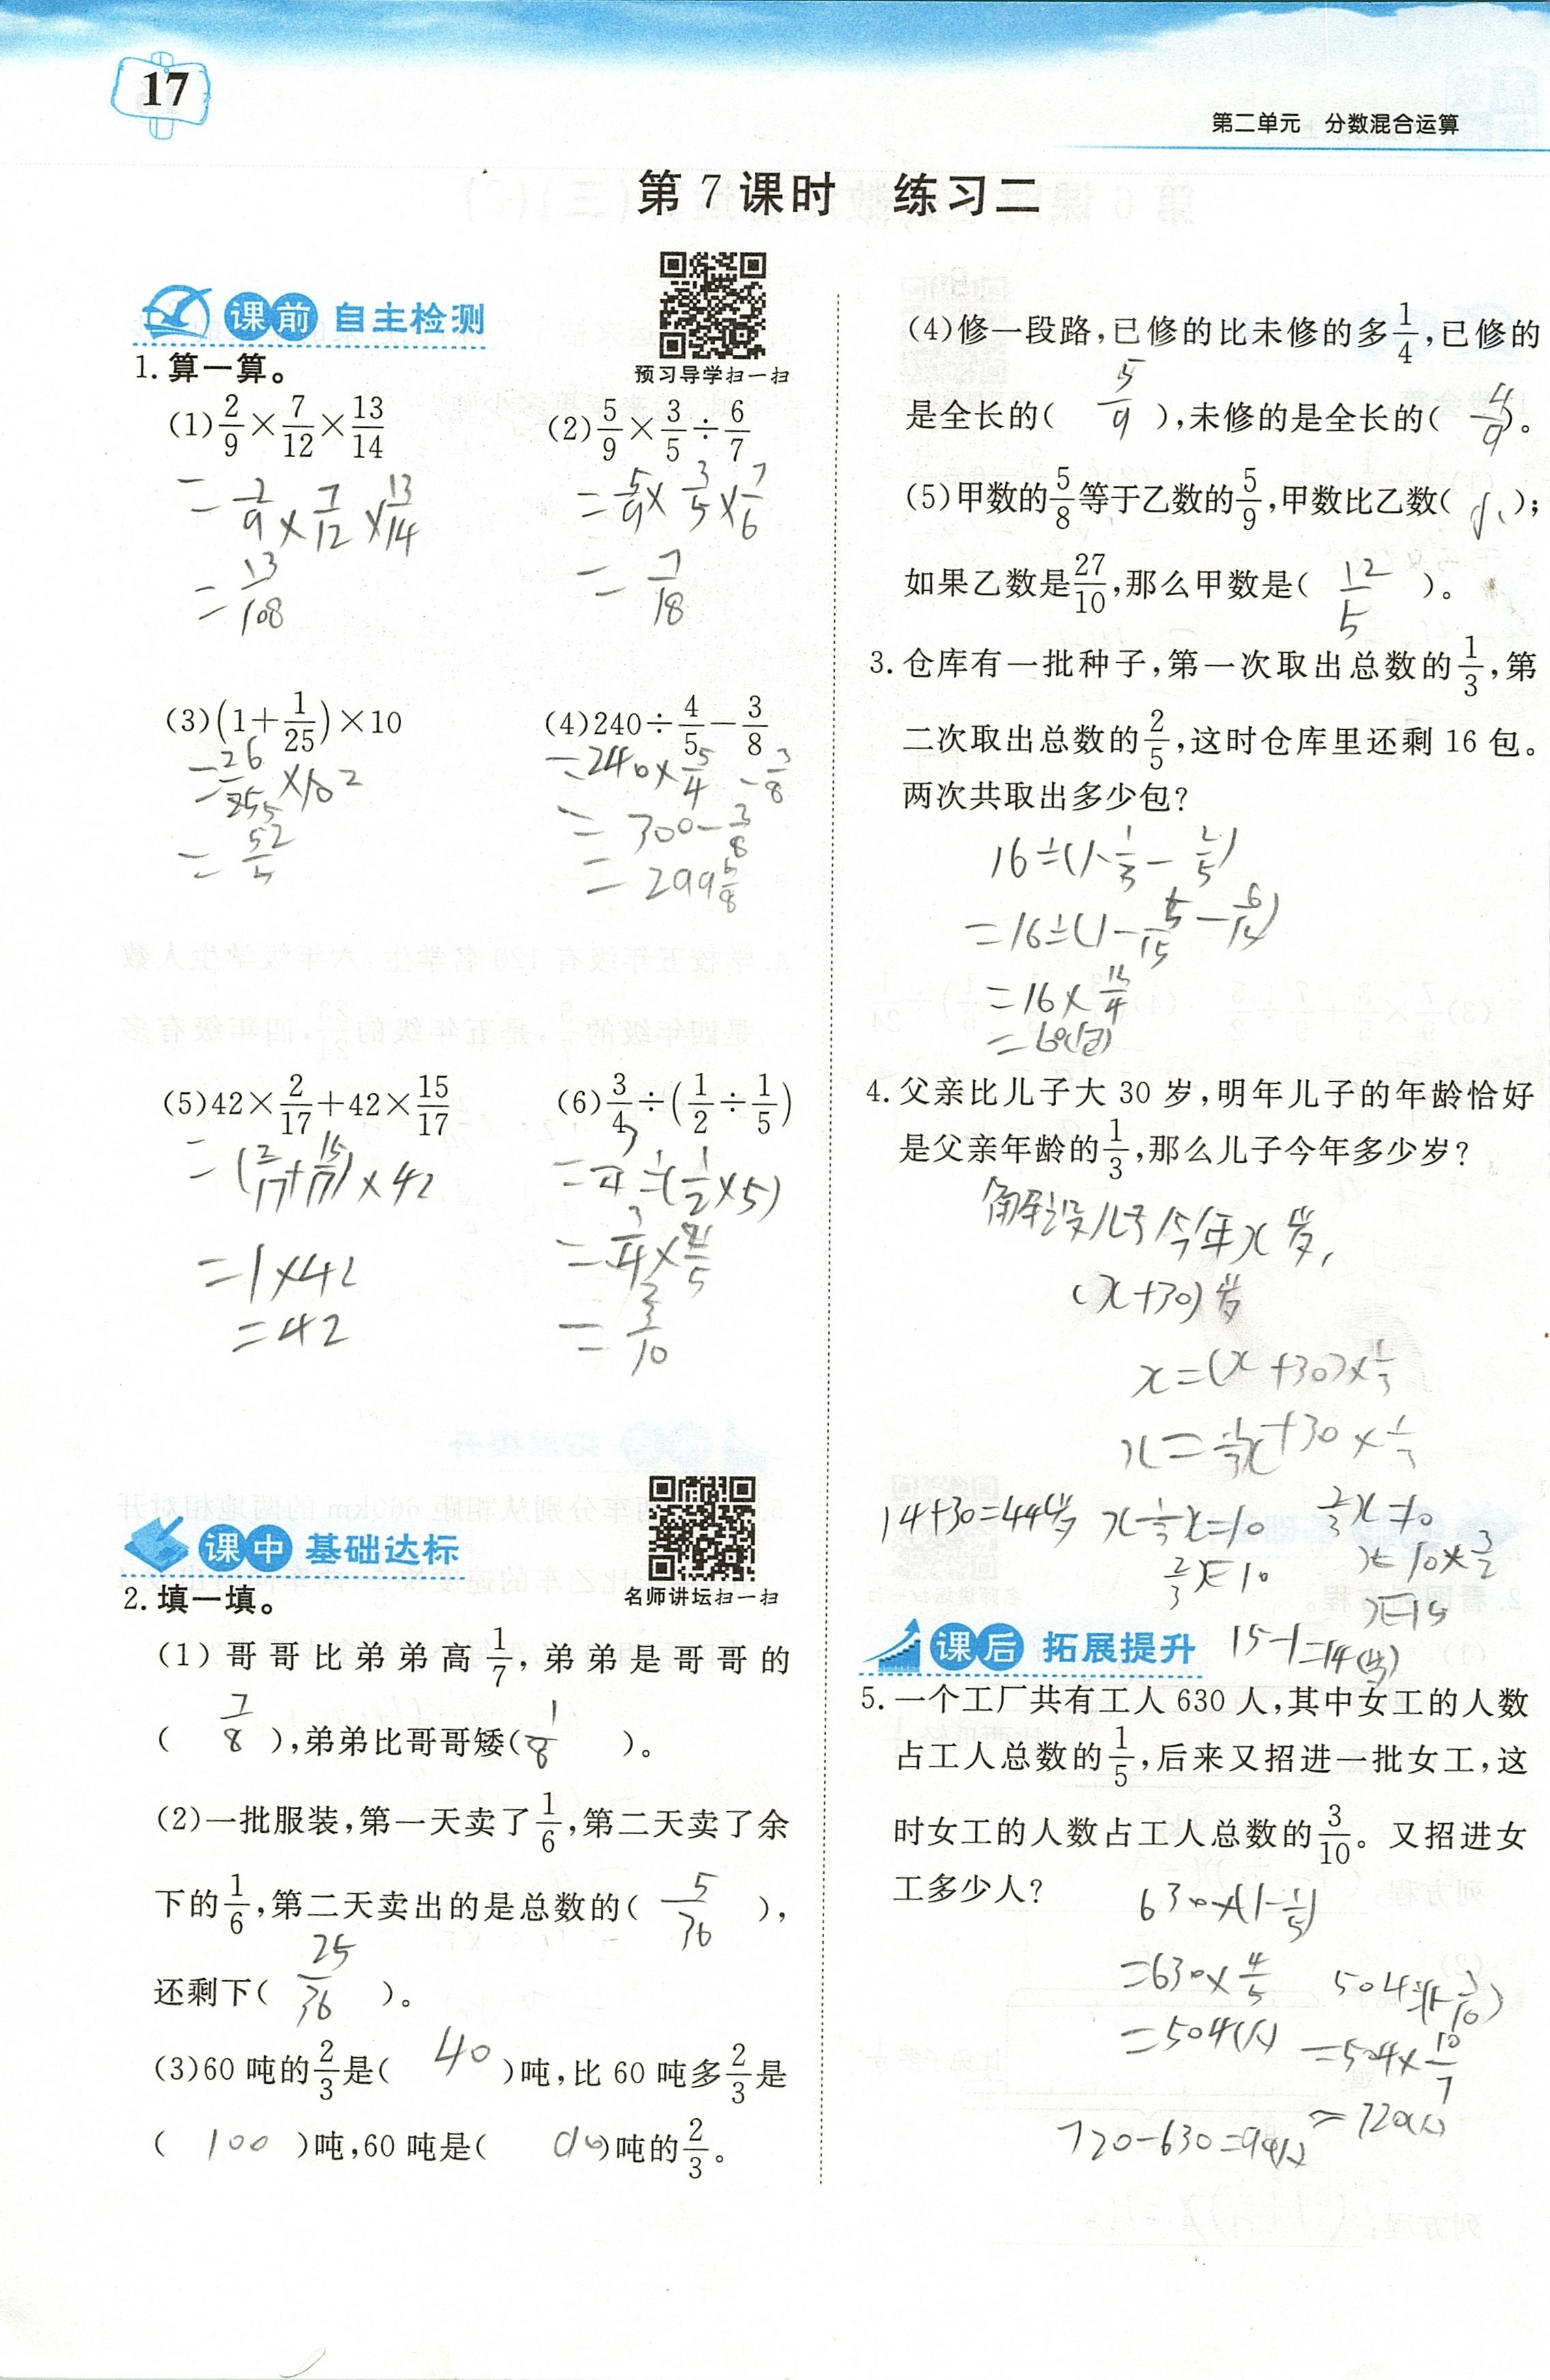 17
第二单元　分数混合运算
第 7 课时　练习二
课前 自主检测
预习导学扫一扫
1. 算一算。
(1) 2/9 × 7/12 × 13/14
= 2/9 × 7/12 × 13/14
= 13/108
(2) 5/9 × 3/5 ÷ 6/7
= 5/9 × 3/5 × 7/6
= 7/18
(3) (1 + 1/25) × 10
= 52/5
(4) 240 ÷ 4/5 − 3/8
= 240 × 5/4 − 3/8
= 300 − 3/8
= 299 5/8
(5) 42 × 2/17 + 42 × 15/17
= (2/17 + 15/17) × 42
= 1 × 42
= 42
(6) 3/4 ÷ (1/2 ÷ 1/5)
= 3/4 ÷ (1/2 × 5)
= 3/10
课中 基础达标
名师讲坛扫一扫
2. 填一填。
(1) 哥哥比弟弟高 1/7, 弟弟是哥哥的
( 7/8 ),弟弟比哥哥矮( 1/8 )。
(2) 一批服装,第一天卖了 1/6,第二天卖了余
下的 1/6,第二天卖出的是总数的( 5/36 ),
还剩下( 25/36 )。
(3) 60 吨的 2/3 是( 40 )吨,比 60 吨多 2/3 是
( 100 )吨,60 吨是( )吨的 2/3。
(4) 修一段路,已修的比未修的多 1/4,已修的
是全长的( 5/9 ),未修的是全长的( 4/9 )。
(5) 甲数的 5/8 等于乙数的 5/9,甲数比乙数( 小 );
如果乙数是 27/10,那么甲数是( 12/5 )。
3. 仓库有一批种子,第一次取出总数的 1/3,第
二次取出总数的 2/5,这时仓库里还剩 16 包。
两次共取出多少包?
16 ÷ (1 − 1/3 − 2/5)
= 16 × 15/4
= 60(包)
4. 父亲比儿子大 30 岁,明年儿子的年龄恰好
是父亲年龄的 1/3,那么儿子今年多少岁?
解设儿子今年x岁,
(x+30)岁
x = (x + 30) × 1/3
x = 1/3 x + 30 × 1/3
14+30=44(岁)
x − 1/3 x = 10
2/3 x = 10
2/3 x = 10
x = 10 × 3/2
x = 15
15 − 1 = 14(岁)
课后 拓展提升
5. 一个工厂共有工人 630 人,其中女工的人数
占工人总数的 1/5,后来又招进一批女工,这
时女工的人数占工人总数的 3/10。又招进女
工多少人?
630 × (1 − 1/5)
= 630 × 4/5
= 504(人)
504 ÷ (1 − 3/10)
= 504 × 10/7
= 720(人)
720 − 630 = 90(人)